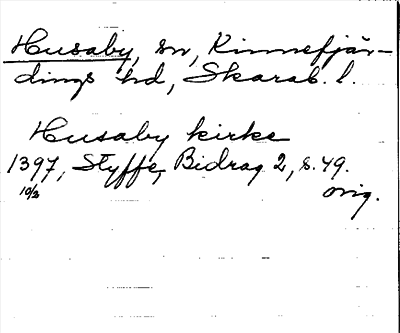 Husaby, sn, Kinnefjär-
dings hd, Skarab. l.
Husaby kirke
1397, Styffe, Bidrag 2, s. 49.
10/3 orig.